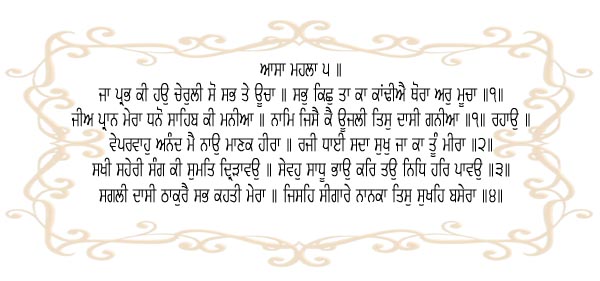 ਆਸਾ ਮਹਲਾ ੫ ॥
ਜਾ ਪ੍ਰਭ ਕੀ ਹਉ ਚੇਰੁਲੀ ਸੋ ਸਭ ਤੇ ਊਚਾ ॥ ਸਭੁ ਕਿਛੁ ਤਾ ਕਾ ਕਾਂਢੀਐ ਥੋਰਾ ਅਰੁ ਮੂਚਾ ॥੧॥
ਜੀਅ ਪ੍ਰਾਨ ਮੇਰਾ ਧਨੋ ਸਾਹਿਬ ਕੀ ਮਨੀਆ ॥ ਨਾਮਿ ਜਿਸੈ ਕੈ ਊਜਲੀ ਤਿਸੁ ਦਾਸੀ ਗਨੀਆ ॥੧॥ ਰਹਾਉ ॥
ਵੇਪਰਵਾਹੁ ਅਨੰਦ ਮੈ ਨਾਉ ਮਾਣਕ ਹੀਰਾ ॥ ਰਜੀ ਧਾਈ ਸਦਾ ਸੁਖੁ ਜਾ ਕਾ ਤੂੰ ਮੀਰਾ ॥੨॥
ਸਖੀ ਸਹੇਰੀ ਸੰਗ ਕੀ ਸੁਮਤਿ ਦ੍ਰਿੜਾਵਉ ॥ ਸੇਵਹੁ ਸਾਧੂ ਭਾਉ ਕਰਿ ਤਉ ਨਿਧਿ ਹਰਿ ਪਾਵਉ ॥੩॥
ਸਗਲੀ ਦਾਸੀ ਠਾਕੁਰੈ ਸਭ ਕਹਤੀ ਮੇਰਾ ॥ ਜਿਸਹਿ ਸੀਗਾਰੇ ਨਾਨਕਾ ਤਿਸੁ ਸੁਖਹਿ ਬਸੇਰਾ ॥੪॥